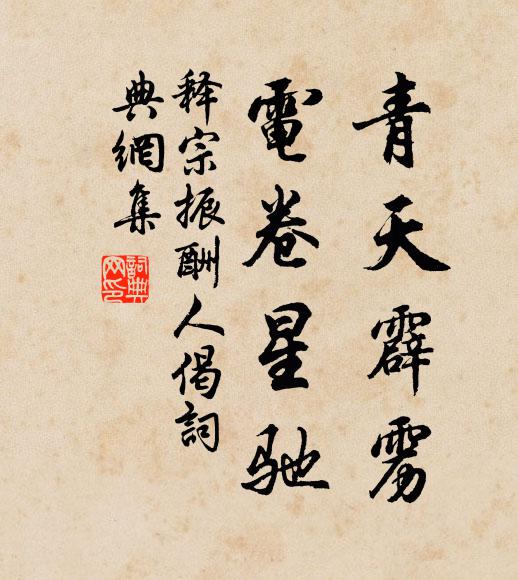 青天霹雳
電卷星驰
释宗振酬人偈詞
典網集
詞典
网印